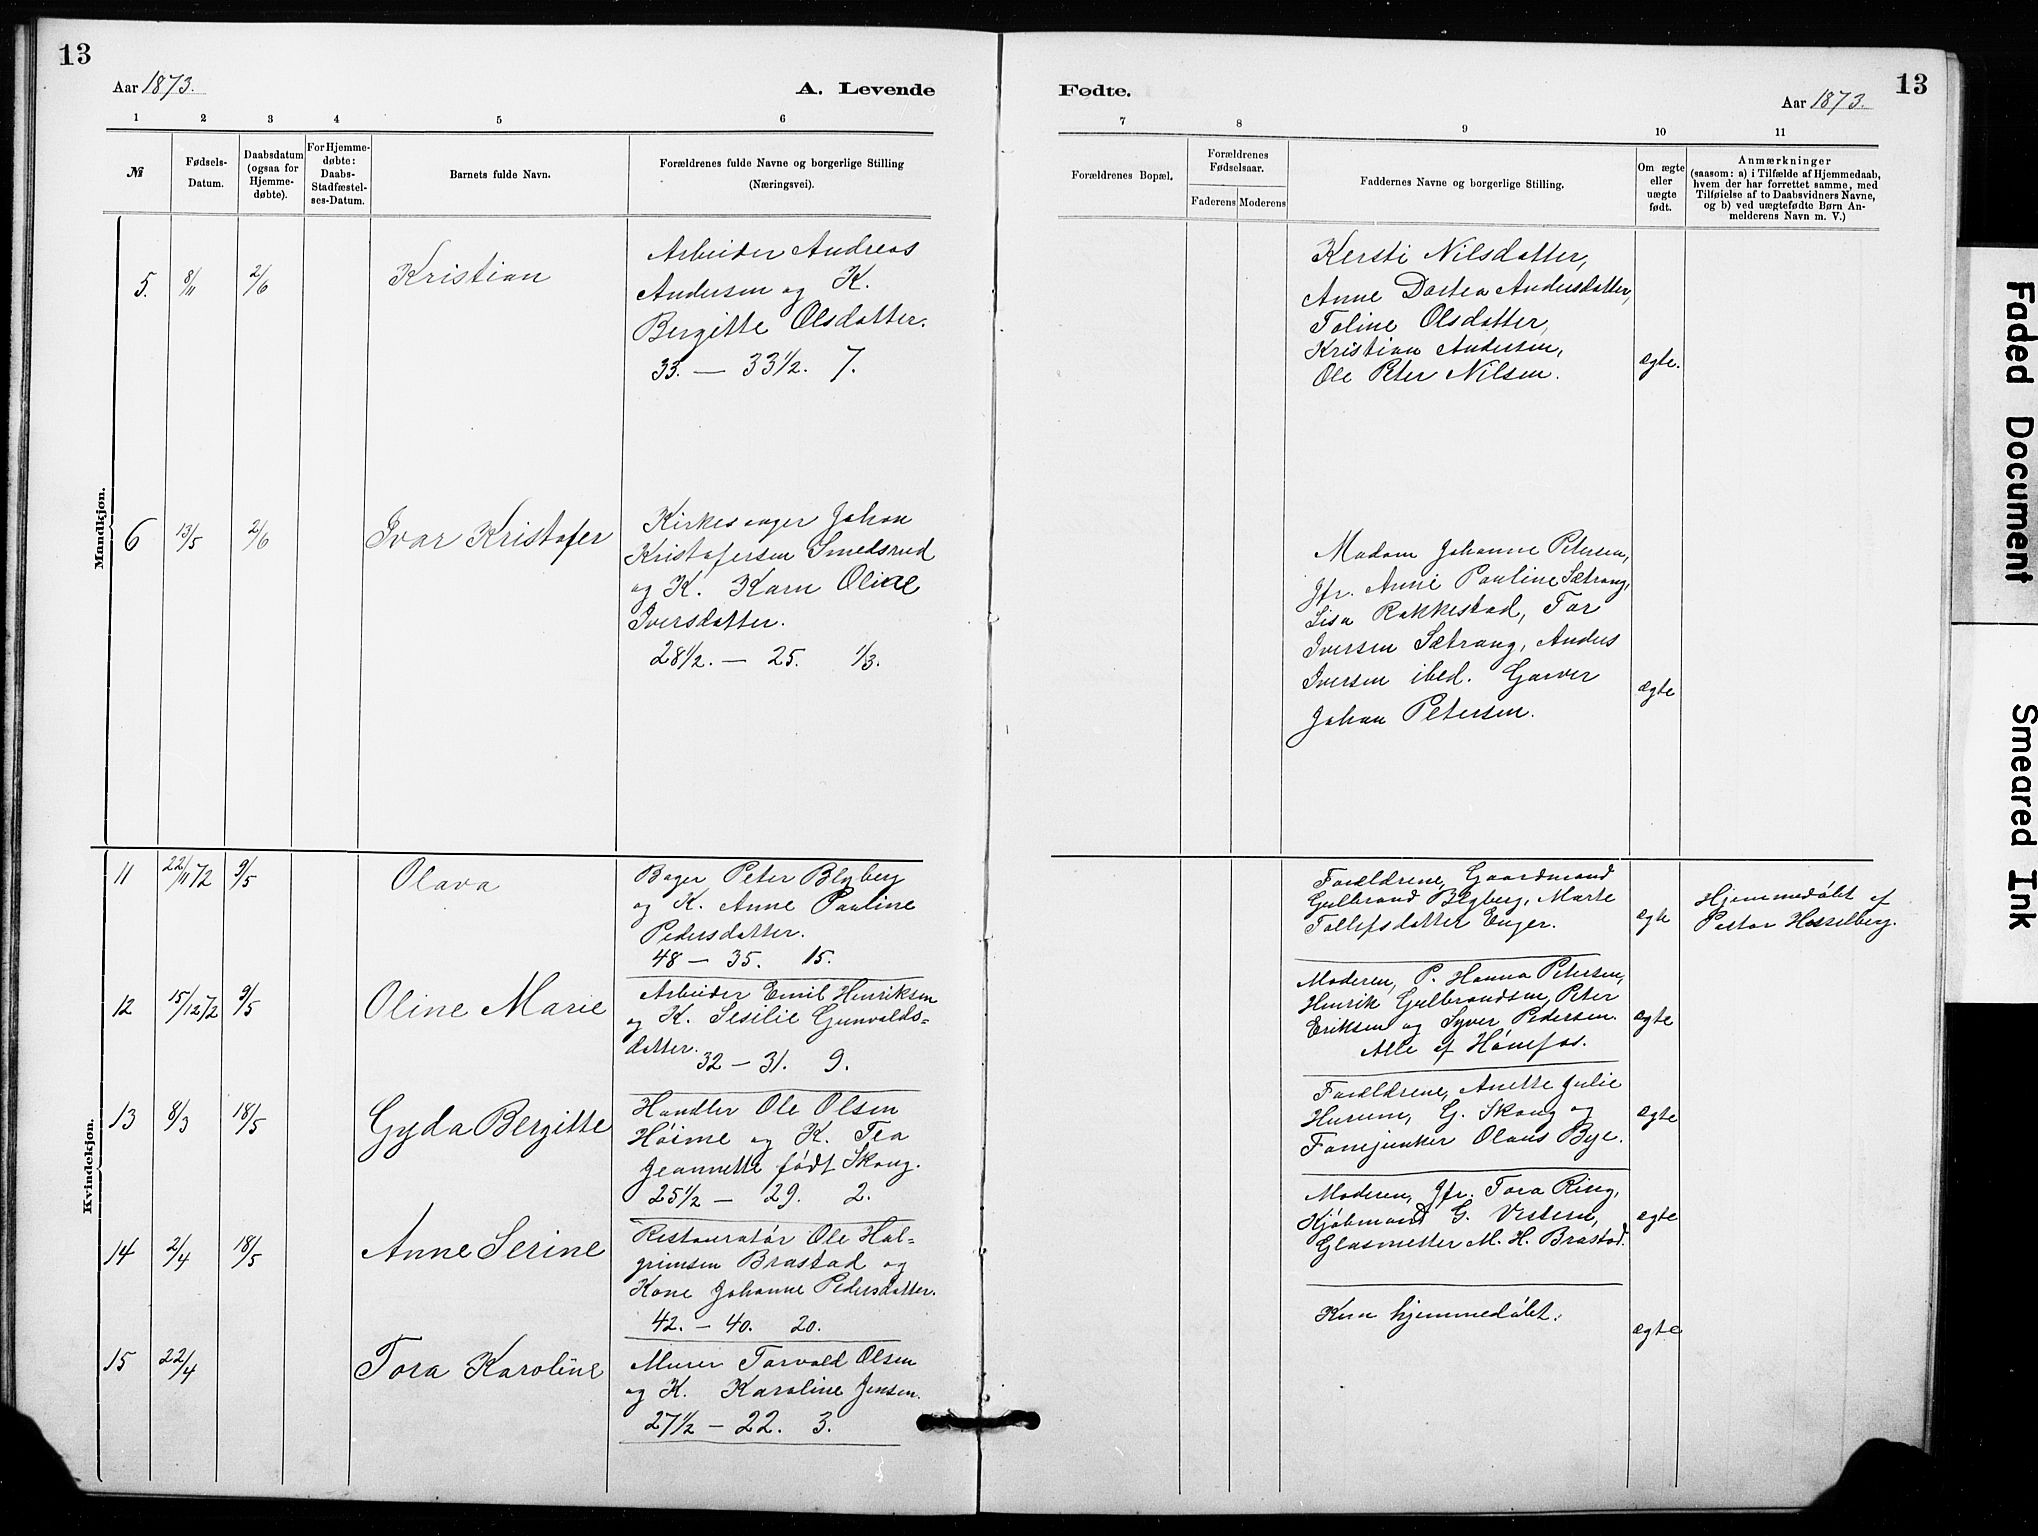 13
Aar 1873.
A. Levende
1 2 3 4 5 6
№
Fødsels-
Datum.
Daabsdatum
(ogsaa for
Hjemme-
døbte).
For Hjemme-
døbte:
Daabs-
Stadfæstel-
ses-Datum.
Barnets fulde Navn.
Forældrenes fulde Navne og borgerlige Stilling
(Næringsvei).
Mandkjøn.
5. 8/11 2/6 Kristian
Arbeider Andreas
Andersen og K.
Bergitte Olsdatter.
33. — 33 1/2. 7.
6 13/5 2/6 Ivar Kristofer
Kirkesanger Johan
Kristofersen Smedsrud
og K. Karn Oline
Iversdatter.
28 1/2. — 25. 1/3.
Kvindekjøn.
11 22/11 72 9/5 Olava
Bager Peter Blyberg
og K. Anne Pauline
Pedersdatter.
48 — 35. 15.
12 15/12 72 9/5 Oline Marie
Arbeider Emil Henriksen
og K. Sesilie Gunvalds-
datter.
32 — 31. 9.
13 8/3 18/5 Gyda Bergitte
Handler Ole Olsen
Høime og K. Tea
Jeannette født Skoug.
25 1/2 — 29. 2.
14 2/4 18/5 Anne Serine
Restauratør Ole Hal-
grimsen Brastad og
Kone Johanne Pedersdatter.
42. — 40. 20.
15 22/4 Tora Karoline
Murer Torvald Olsen
og K. Karoline Jensen.
27 1/2 — 22. 3.
13
Fødte.
Aar 1873.
7 8 9 10 11
Forældrenes Bopæl.
Forældrenes
Fødselsaar.
Faderens Moderens
Faddernes Navne og borgerlige Stilling.
Om ægte
eller
uægte
født.
Anmærkninger
(saasom: a) i Tilfælde af Hjemmedaab,
hvem der har forrettet samme, med
Tilføielse af to Daabsvidners Navne,
og b) ved uægtefødte Børn An-
melderens Navn m. V.)
Kersti Nilsdatter,
Anne Dortea Andersdatter,
Toline Olsdatter,
Kristian Andersen,
Ole Peter Nilsen.
ægte.
Madam Johanne Petersen,
Jfr. Anne Pauline Sætrang,
Lisa Rakkestad, Tor
Iversen Sætrang, Anders
Iversen ibed. Garver
Johan Petersen.
ægte
Forældrene, Gaardmand
Gulbrand Blyberg, Marte
Tollefsdatter Enger.
ægte
Hjemmedøbt af
Pastor Hesselberg.
Moderen, P. Hanna Petersen,
Henrik Gulbrandsen, Peter
Eriksen og Syver Pedersen.
Alle af Hønefos.
ægte
Forældrene, Anette Julie
Hurum, G. Skoug og
Fanejunker Olaus Bye.
ægte
Moderen, Jfr. Tora Ring,
Kjøbmand G. Vestern,
Glasmester M. H. Brastad.
ægte
Kun hjemmedøbt.
ægte
Faded Document
Smeared Ink